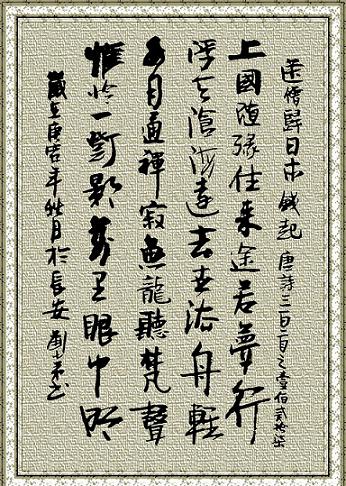 送僧歸日本 錢起 唐詩三百首之壹佰貳拾柒
上國隨緣住來途若夢行
浮天滄海遠去世法舟輕
水月通禪寂魚龍聽梵聲
惟憐一燈影萬里眼中明
歲在庚寅年秋月於長安 劉書